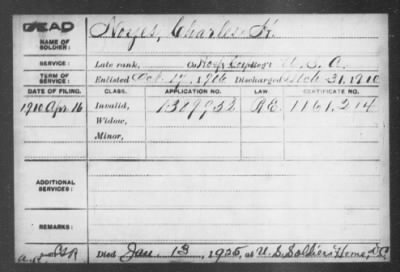 DEAD Noyes, Charles H.
NAME OF SOLDIER:
SERVICE: Late rank, Co. Hosp. Corps Reg't U. S. A.
TERM OF SERVICE: Enlisted Oct. 17, 1906 Discharged Mch. 31, 1910
DATE OF FILING. CLASS. APPLICATION NO. LAW CERTIFICATE NO.
1910 Apr. 16 Invalid, 1389932 R.E. 1161,214
Widow,
Minor,
ADDITIONAL SERVICES:
REMARKS:
Died Jan. 13, 1925, at U.S. Soldiers Home, D.C.